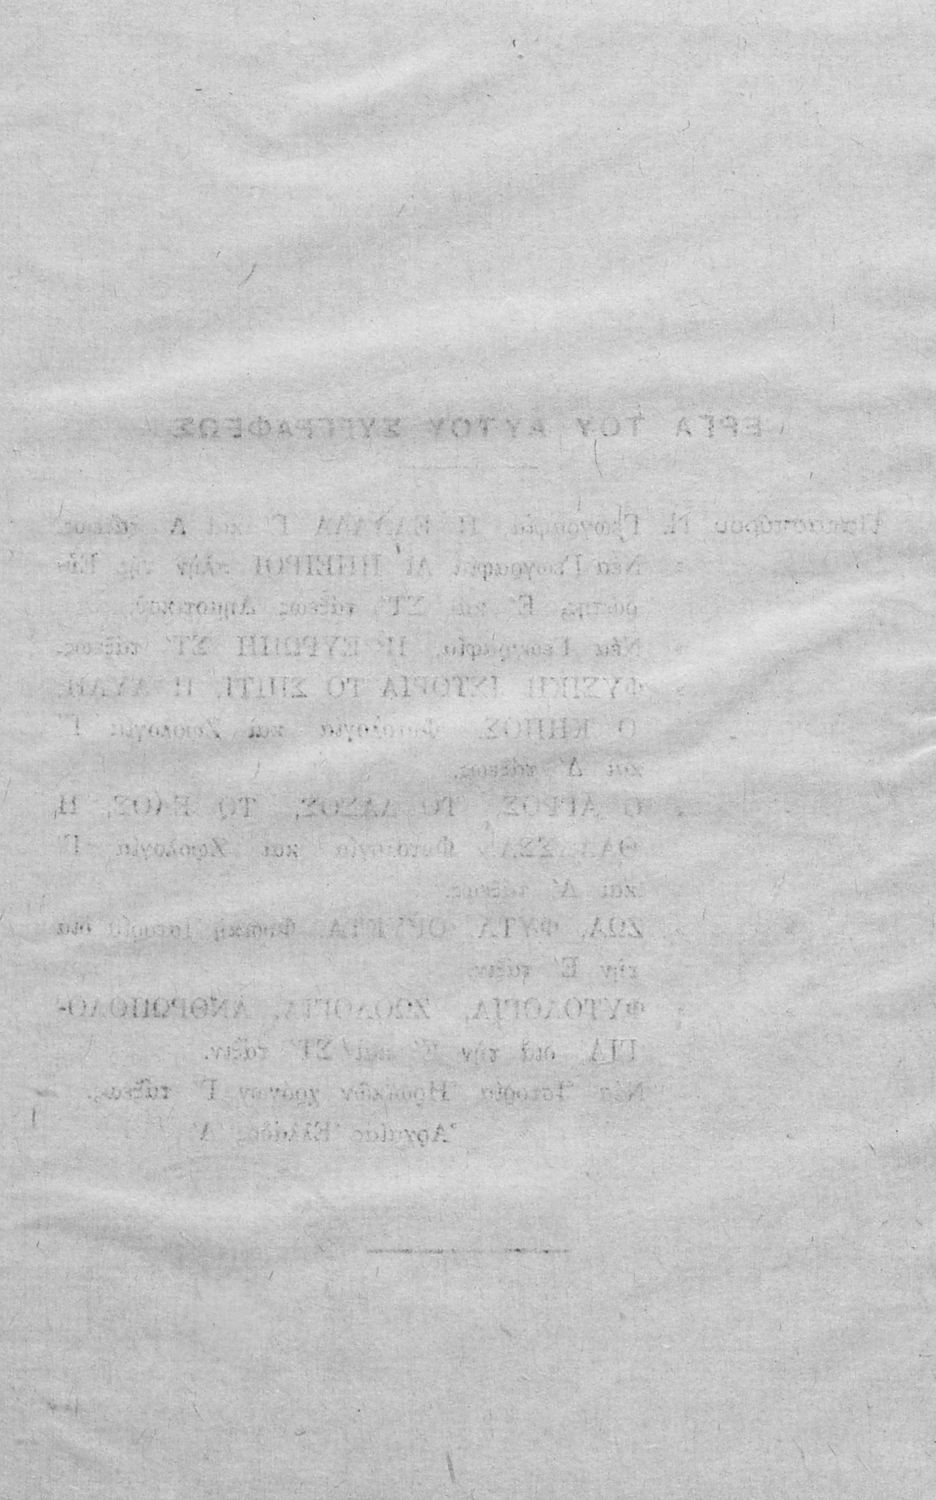 ΕΡΓΑ ΤΟΥ ΑΥΤΟΥ ΣΥΓΓΡΑΦΕΩΣ
Παπασπύρου Ν. Γεωγραφία Η ΕΛΛΑΔΑ Γ′ καὶ Δ τάξεως.
Νέα Γεωγραφία ΑΙ ΗΠΕΙΡΟΙ πλὴν τῆς Εὐ-
ρώπης Ε′ καὶ ΣΤ′ τάξεως Δημοτικοῦ.
Νέα Γεωγραφία, Η ΕΥΡΩΠΗ ΣΤ′ τάξεως.
ΦΥΣΙΚΗ ΙΣΤΟΡΙΑ ΤΟ ΣΠΙΤΙ, Η ΑΥΛΗ,
Ο ΚΗΠΟΣ. Φυτολογία καὶ Ζῳολογία Γ′
καὶ Δ′ τάξεως.
Ο ΑΓΡΟΣ, ΤΟ ΔΑΣΟΣ, ΤΟ ΕΛΟΣ, Η
ΘΑΛΑΣΣΑ Φυτολογία καὶ Ζῳολογία Γ′
καὶ Δ′ τάξεως.
ΖΩΑ, ΦΥΤΑ ΟΡΥΚΤΑ Φυσικὴ Ἱστορία διὰ
τὴν Ε′ τάξιν.
ΦΥΤΟΛΟΓΙΑ, ΖΩΟΛΟΓΙΑ, ΑΝΘΡΩΠΟΛΟ-
ΓΙΑ διὰ τὴν Ε′ καὶ ΣΤ′ τάξιν.
Νέα Ἱστορία Ἡρωϊκῶν χρόνων Γ′ τάξεως.
Ἀρχαίας Ἑλλάδος Δ′